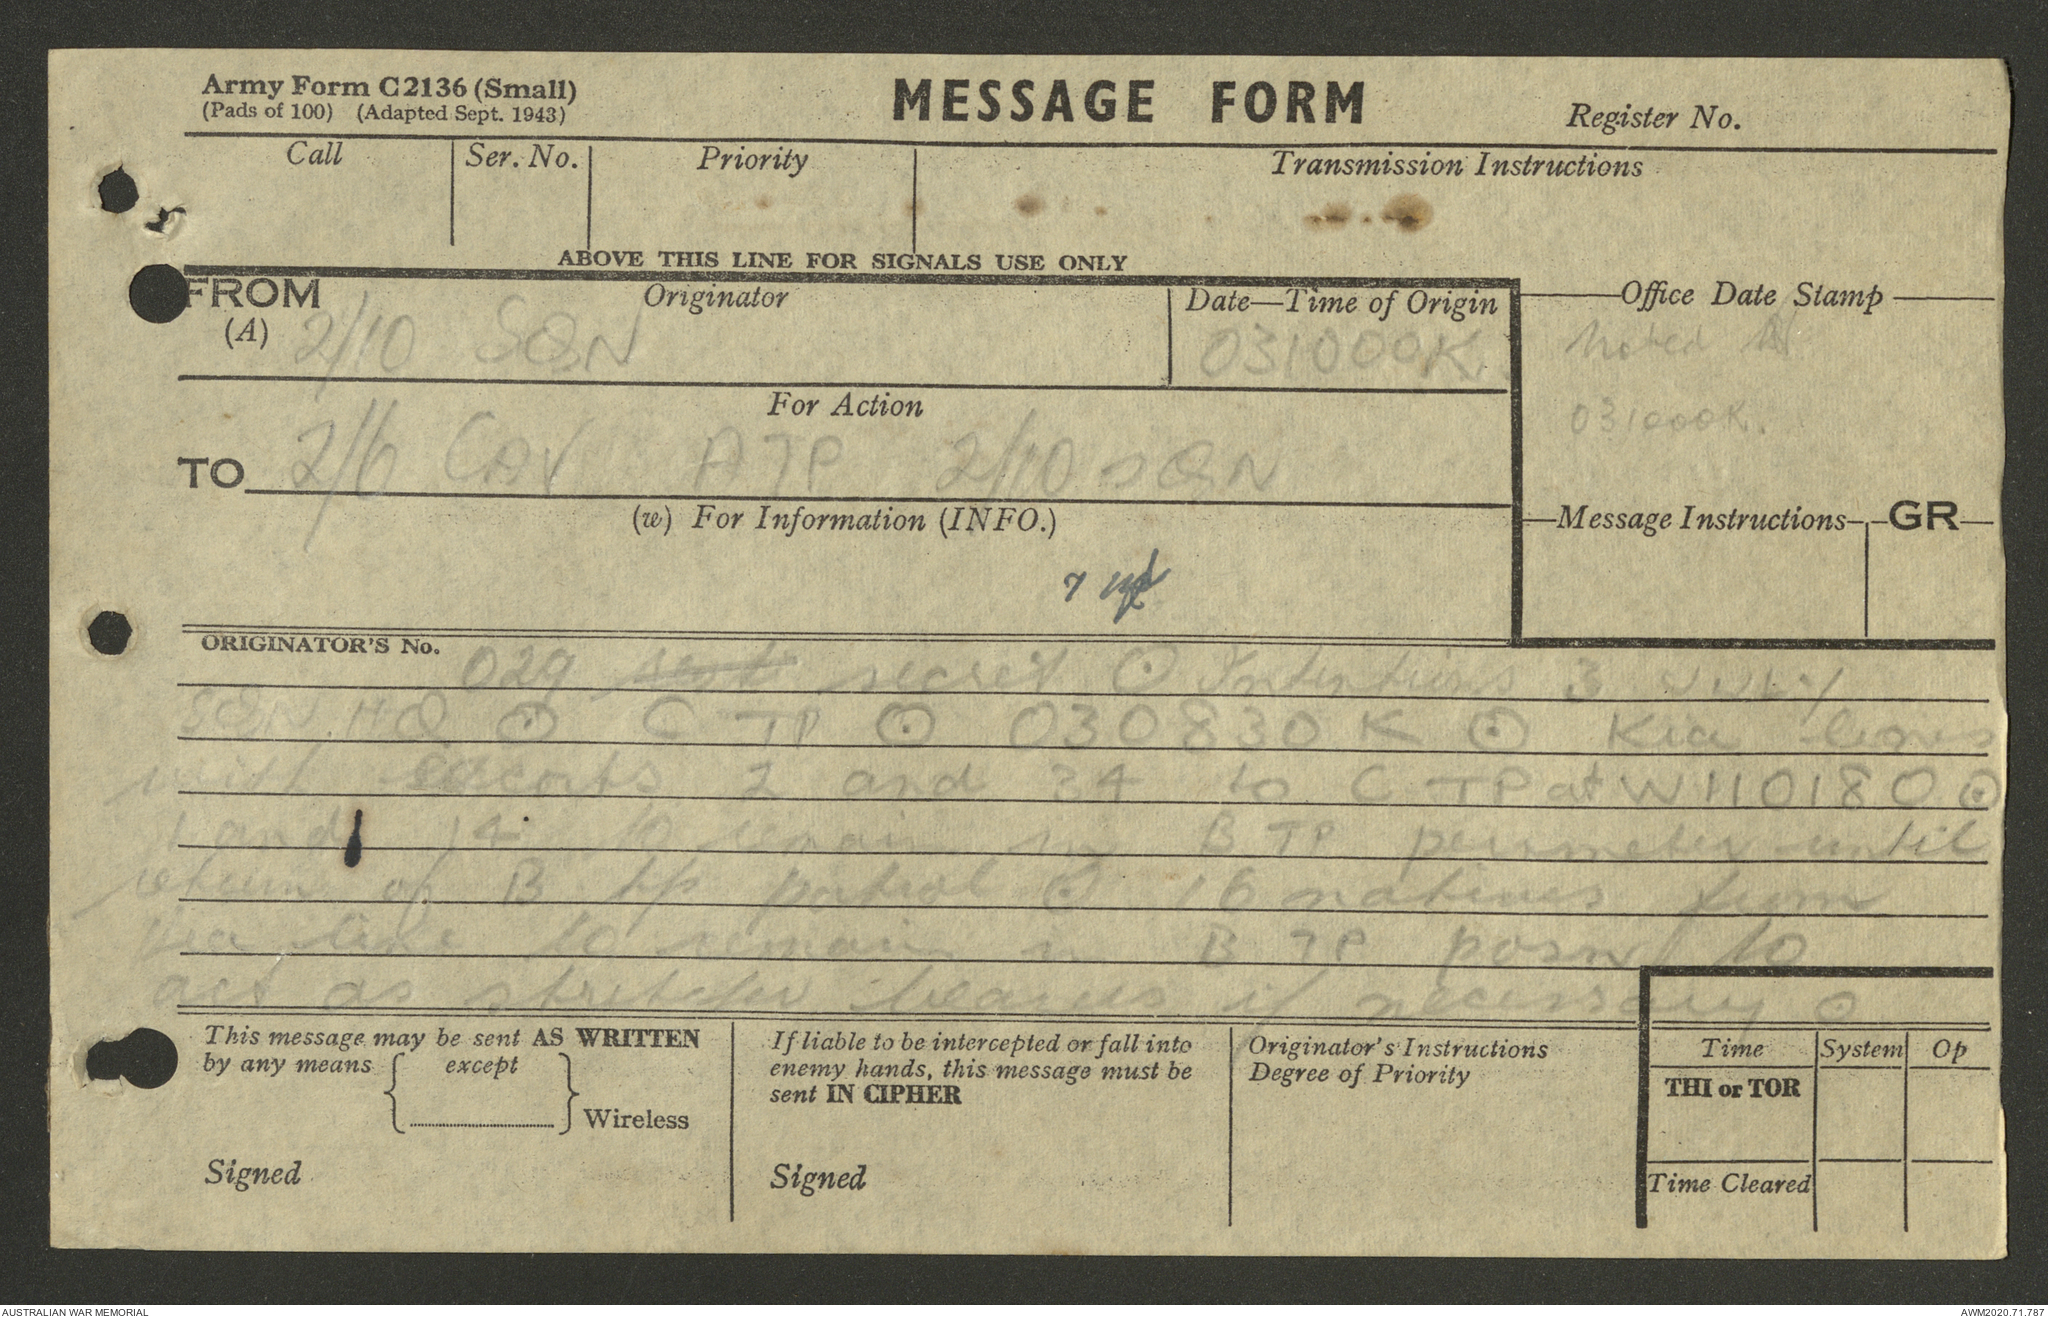 Army Form C2136 (Small)
(Pads of 100) (Adapted Sept. 1943)
MESSAGE FORM
Register No.
Call
Ser. No.
Priority
Transmission Instructions
ABOVE THIS LINE FOR SIGNALS USE ONLY
FROM
(A)
Originator
2/10 SQN
Date—Time of Origin
031000K.
Office Date Stamp
Noted
031000K.
For Action
TO
2/6 CAV A TP 2/10 SQN
(w) For Information (INFO.)
Message Instructions
GR
7
ORIGINATOR'S No.
029 secret ⊙ Intentions 3 July
SQN HQ ⊙ C TP ⊙ 030830K ⊙ Kia
with escorts 2 and 34 to C TP at W110180 ⊙
and 14 to remain in B TP perimeter until
return of B tp patrol ⊙ 16 natives from
kia line to remain in B TP posn to
act as stretcher bearers if necessary ⊙
This message may be sent AS WRITTEN
by any means { except
} Wireless
Signed
If liable to be intercepted or fall into
enemy hands, this message must be
sent IN CIPHER
Signed
Originator's Instructions
Degree of Priority
Time
System
Op
THI or TOR
Time Cleared
AUSTRALIAN WAR MEMORIAL
AWM2020.71.787